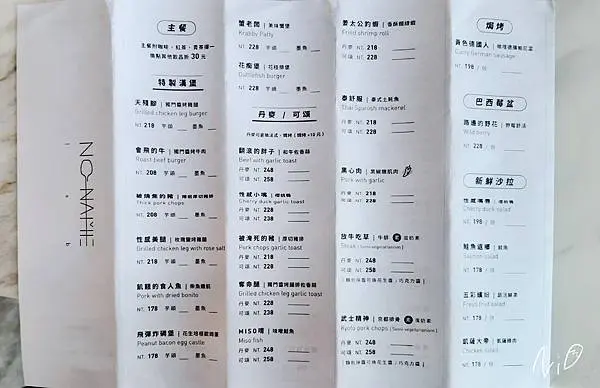 NONAME
主餐
特製漢堡
天殘腳 | 獨門醬烤雞腿
Grilled chicken leg burger
NT. 218 芋頭 墨魚
會飛的牛 | 獨門醬烤牛肉
Roast beef burger
NT. 208 芋頭 墨魚
Thick pork chops
NT. 208 芋頭 墨魚
性感美腿 | 玫瑰鹽烤雞腿
Grilled chicken leg with rose salt
NT. 218 芋頭 墨魚
飢餓的食人魚 | 柴魚雞肌
Pork with dried bonito
NT. 178 芋頭 墨魚
飛彈炸碉堡 | 花生培根歐姆蛋
Peanut bacon egg castle
NT. 178 芋頭 墨魚
蟹老闆 | 美味蟹堡
Krabby Patty
NT. 228 芋頭 墨魚
花痴堡 | 花枝排堡
Cuttlefish burger
NT. 228 芋頭 墨魚
丹麥 / 可頌
翻滾的胖子 | 和牛佐香蒜
Beef with garlic toast
丹麥 NT. 228
可頌 NT. 238
性感小嘴 | 櫻桃鴨
Cherry duck garlic toast
丹麥 NT. 228
可頌 NT. 238
被淹死的豬 | 厚切豬排
Pork chops garlic toast
丹麥 NT. 218
可頌 NT. 228
奪命腿 | 獨門醬烤雞腿佐香蒜
Grilled chicken leg garlic toast
丹麥 NT. 218
可頌 NT. 228
MISO噢 | 味噌鮭魚
Miso fish
丹麥 NT. 248
可頌 NT. 258
姜太公釣蝦 | 香酥蝦排蝦
Fried shrimp roll
丹麥 NT. 218
可頌 NT. 228
泰舒服 | 泰式土魠魚
Thai Spanish mackerel
丹麥 NT. 238
可頌 NT. 248
黑心肉 | 黑椒雞肌肉
Pork with garlic
丹麥 NT. 218
可頌 NT. 228
放牛吃草 | 牛排
Steak (Semi-vegetarianism)
丹麥 NT. 248
可頌 NT. 258
武士精神 | 京都排骨
Kyoto pork chops (Semi-vegetarianism)
丹麥 NT. 248
可頌 NT. 258
焗烤
黃色德國人 | 咖哩德腸帕尼尼
Curry German sausage
NT. 198 / 份
巴西莓盆
路邊的野花 | 野莓舒活
Wild berry
NT. 228 / 份
新鮮沙拉
性感嘴唇 | 櫻桃鴨
Cherry duck salad
NT. 198 / 份
鮭魚返鄉 | 鮭魚
Salmon salad
NT. 178 / 份
五彩繽紛 | 蔬活鮮果
Fresh fruit salad
NT. 178 / 份
凱薩大帝 | 雞胸肉
Chicken salad
NT. 178 / 份